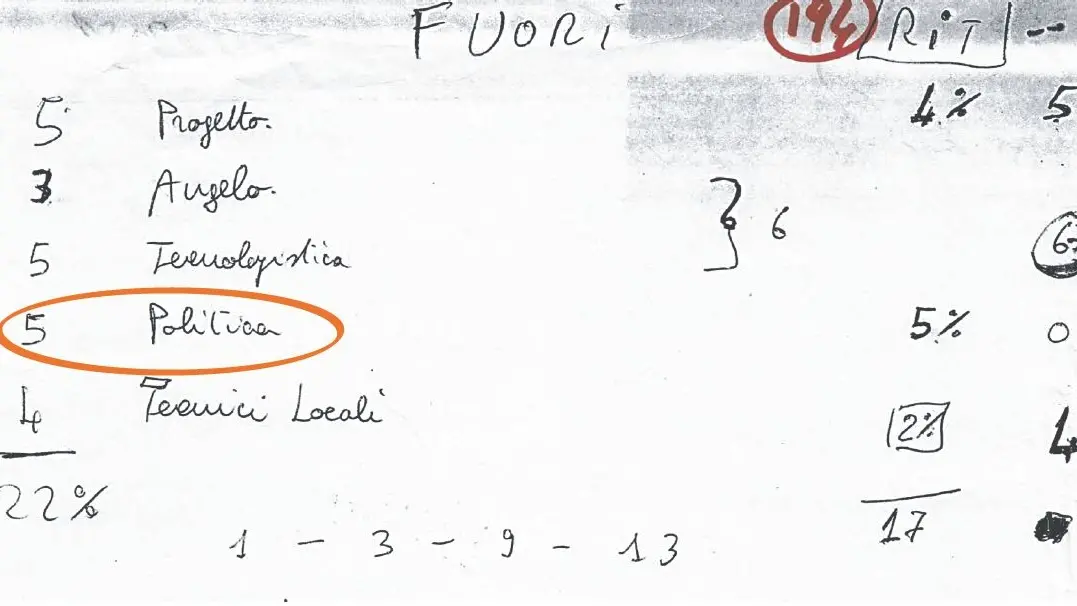 FUORI 194 RIT --
5 Progetto. 4% 5
3 Angelo.
5 Tecnologistica } 6 6
5 Politica 5% 0
4 Tecnici Locali 2% 4
22% 17
1 - 3 - 9 - 13